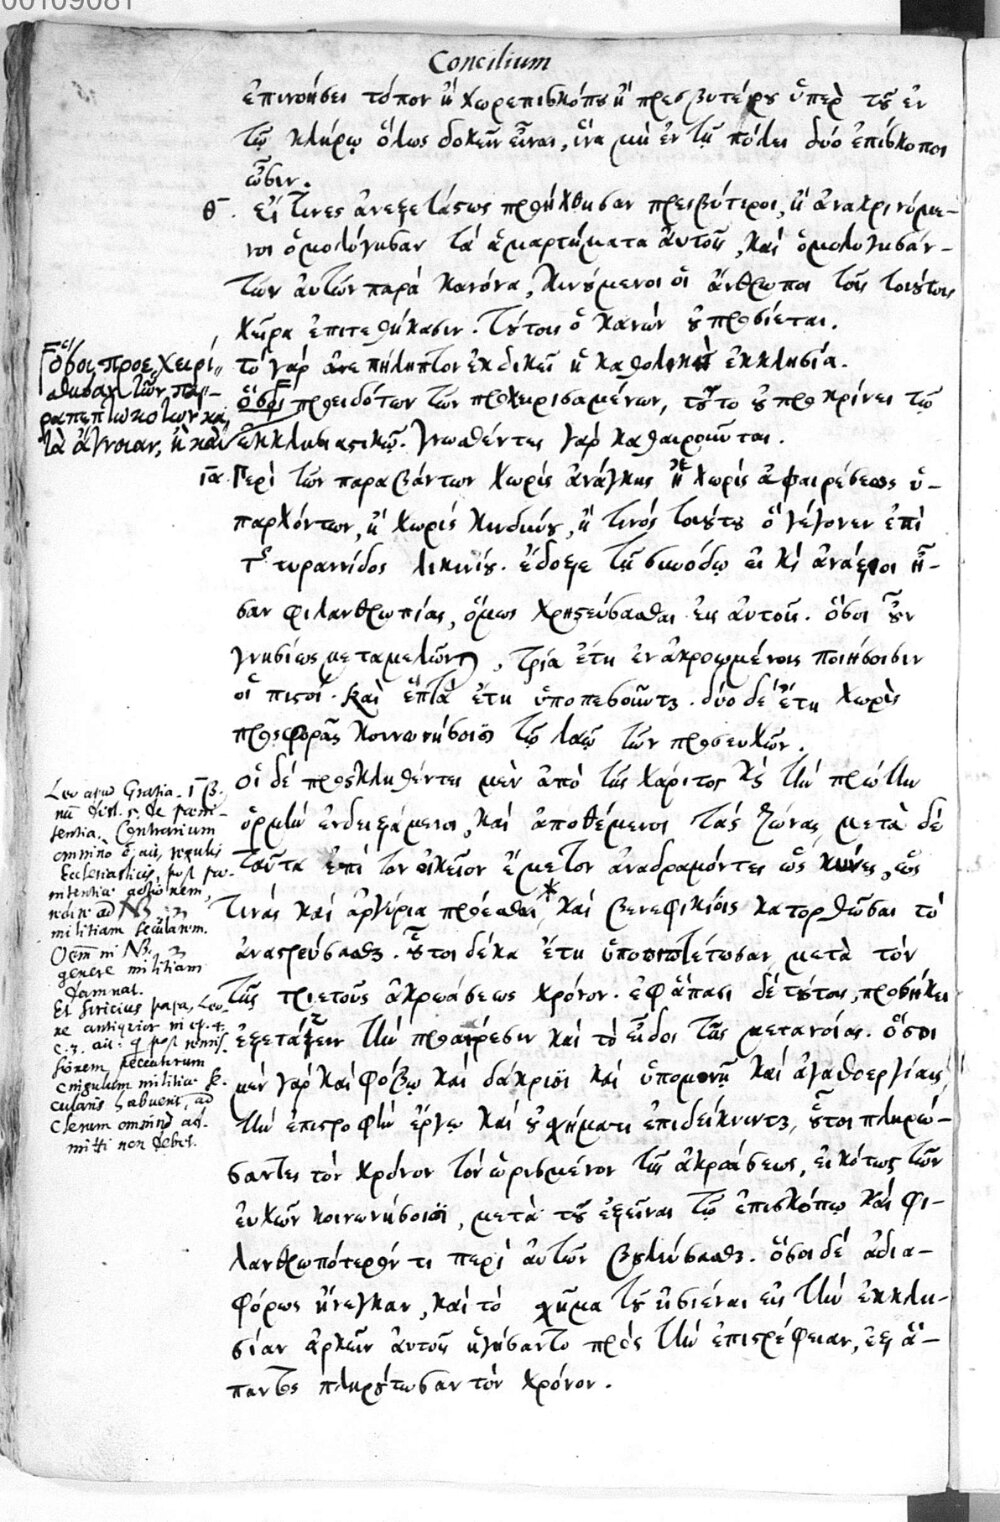 00109081
Concilium
ἐπινοήσει τόπον ἢ χωρεπισκόπου ἢ πρεσβυτέρου ὑπὲρ τοῦ ἐν
τῷ κλήρῳ ὅλως δοκεῖν εἶναι, ἵνα μὴ ἐν τῇ πόλει δύο ἐπίσκοποι
ὦσιν.
θ. εἴ τινες ἀνεξετάστως προήχθησαν πρεσβύτεροι, ἢ ἀνακρινόμε-
νοι ὁμολόγησαν τὰ ἁμαρτήματα αὐτοῖς, καὶ ὁμολογησάν-
των αὐτῶν παρὰ κανόνα, κινούμενοι οἱ ἄνθρωποι τοῖς τοιούτοις
χεῖρα ἐπιτεθήκασιν. τούτους ὁ κανὼν οὐ προσίεται.
τὸ γὰρ ἀνεπίληπτον ἐκδικεῖ ἡ καθολικὴ ἐκκλησία.
ὅσοι προεχειρί-
σθησαν τῶν πα-
ραπεπτωκότων κα-
τὰ ἄγνοιαν, ἢ καὶ
ὅσοι προειδότων τῶν προχειρισαμένων, τοῦτο οὐ προκρίνει τῷ
ἐκκλησιαστικῷ. γνωσθέντες γὰρ καθαιροῦνται.
ια. Περὶ τῶν παραβάντων χωρὶς ἀνάγκης ἢ χωρὶς ἀφαιρέσεως ὑ-
παρχόντων, ἢ χωρὶς κινδύνου, ἢ τινός τοιούτου ὃ γέγονεν ἐπὶ
τῆς τυραννίδος λικινίου. ἔδοξε τῇ συνόδῳ εἰ καὶ ἀνάξιοι ἦ-
σαν φιλανθρωπίας, ὅμως χρηστεύσασθαι εἰς αὐτούς. ὅσοι οὖν
γνησίως μεταμελῶνται, τρία ἔτη ἐν ἀκροωμένοις ποιήσουσιν
οἱ πιστοί. καὶ ἑπτὰ ἔτη ὑποπεσοῦνται. δύο δὲ ἔτη χωρὶς
προσφορᾶς κοινωνήσουσι τῷ λαῷ τῶν προσευχῶν.
οἱ δὲ προσκληθέντες μὲν ἀπὸ τῆς χάριτος καὶ τὴν πρώτην
ὁρμὴν ἐνδειξάμενοι, καὶ ἀποθέμενοι τὰς ζώνας, μετὰ δὲ
ταῦτα ἐπὶ τὸν οἰκεῖον ἔμετον ἀναδραμόντες ὡς κύνες, ὥς
τινὰς καὶ ἀργύρια προέσθαι, καὶ βενεφικίοις κατορθῶσαι τὸ
ἀναστρεύσασθαι. οὗτοι δέκα ἔτη ὑποπιπτέτωσαν μετὰ τὸν
τῆς τριετοῦς ἀκροάσεως χρόνον. ἐφ' ἅπασι δὲ τούτοις, προσήκει
ἐξετάζειν τὴν προαίρεσιν καὶ τὸ εἶδος τῆς μετανοίας. ὅσοι
μὲν γὰρ καὶ φόβῳ καὶ δάκρυσι καὶ ὑπομονῇ καὶ ἀγαθοεργίαις
τὴν ἐπιστροφὴν ἔργῳ καὶ οὐ σχήματι ἐπιδείκνυνται, οὗτοι πληρώ-
σαντες τὸν χρόνον τὸν ὡρισμένον τῆς ἀκροάσεως, εἰκότως τῶν
εὐχῶν κοινωνήσουσι, μετὰ τοῦ ἐξεῖναι τῷ ἐπισκόπῳ καὶ φι-
λανθρωπότερόν τι περὶ αὐτῶν βουλεύσασθαι. ὅσοι δὲ ἀδια-
φόρως ἤνεγκαν, καὶ τὸ σχῆμα τοῦ εἰσιέναι εἰς τὴν ἐκκλη-
σίαν ἀρκεῖν αὐτοῖς ἡγήσαντο πρὸς τὴν ἐπιστρέφειαν, ἐξ ἅ-
παντος πληρούτωσαν τὸν χρόνον.
Leo apud Gratia.
tentia. Contrarium
omnino ait, regulis
Ecclesiasticis, post pe-
nitentiae actionem,
redire ad
militiam secularem.
genere militiam
damnat.
Et Siricius papa, Leo-
ne antiquior in ep. 4.
c. 3. ait: q post remis-
sionem peccatorum
cingulum militiae se-
cularis habuerit, ad
Clerum omnino ad-
mitti non debet.